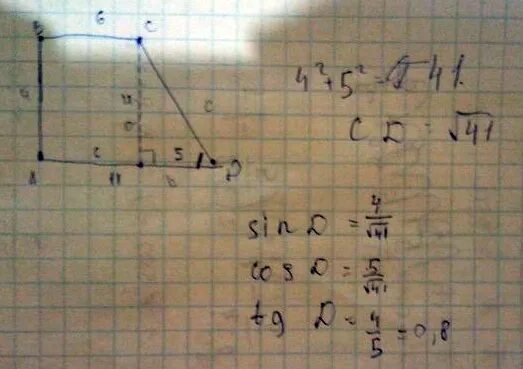 6
B C
4 4 c
6 5
A H D
4² + 5² = √41
CD = √41
sin D = 4/√41
cos D = 5/√41
tg D = 4/5 = 0,8